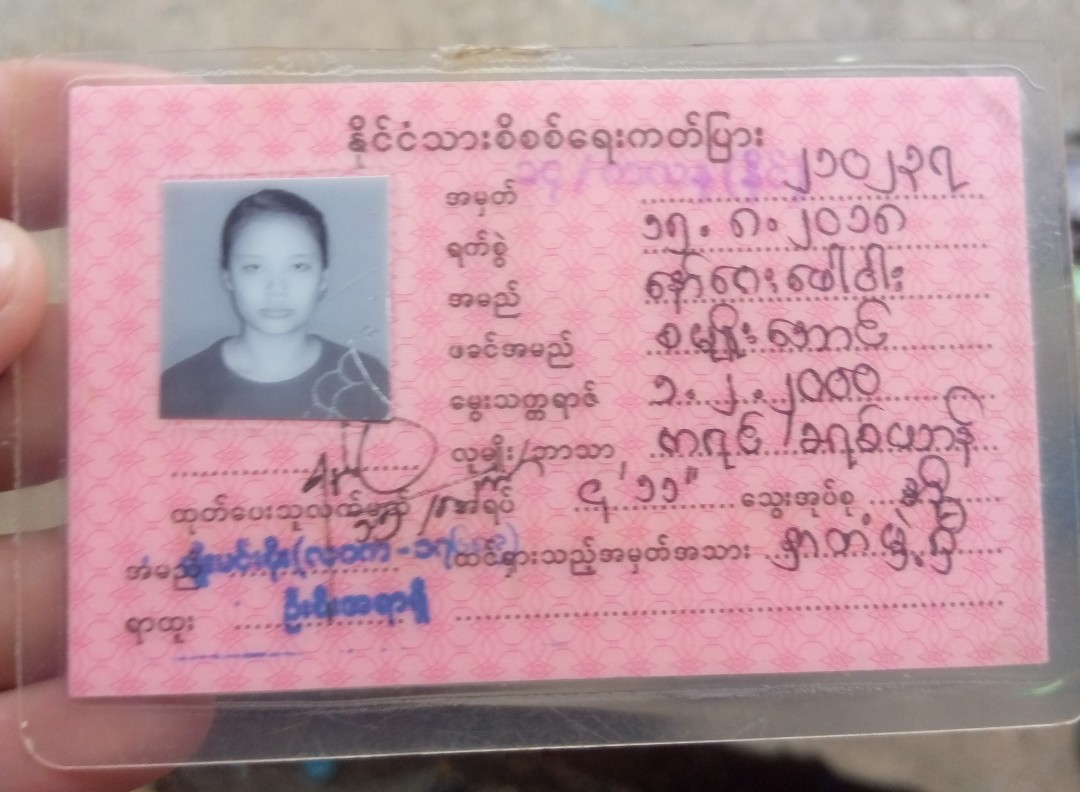 နိုင်ငံသားစိစစ်ရေးကတ်ပြား
အမှတ် ၁၄ / (နိုင်) ၂၁၀၂၃၇
ရက်စွဲ ၁၅.၈.၂၀၁၈
အမည် နော်ဝေးဖေါဒါး
ဖခင်အမည် စမျိုးအောင်
မွေးသက္ကရာဇ် ၁.၂.၂၀၀၀
လူမျိုး/ဘာသာ ကရင်/ခရစ်ယာန်
အရပ် ၄'၁၁" သွေးအုပ်စု
ထုတ်ပေးသူလက်မှတ်
အမည် (လဝက - ၁၇ ထင်ရှားသည့်အမှတ်အသား
ရာထူး ဦးစီးအရာရှိ